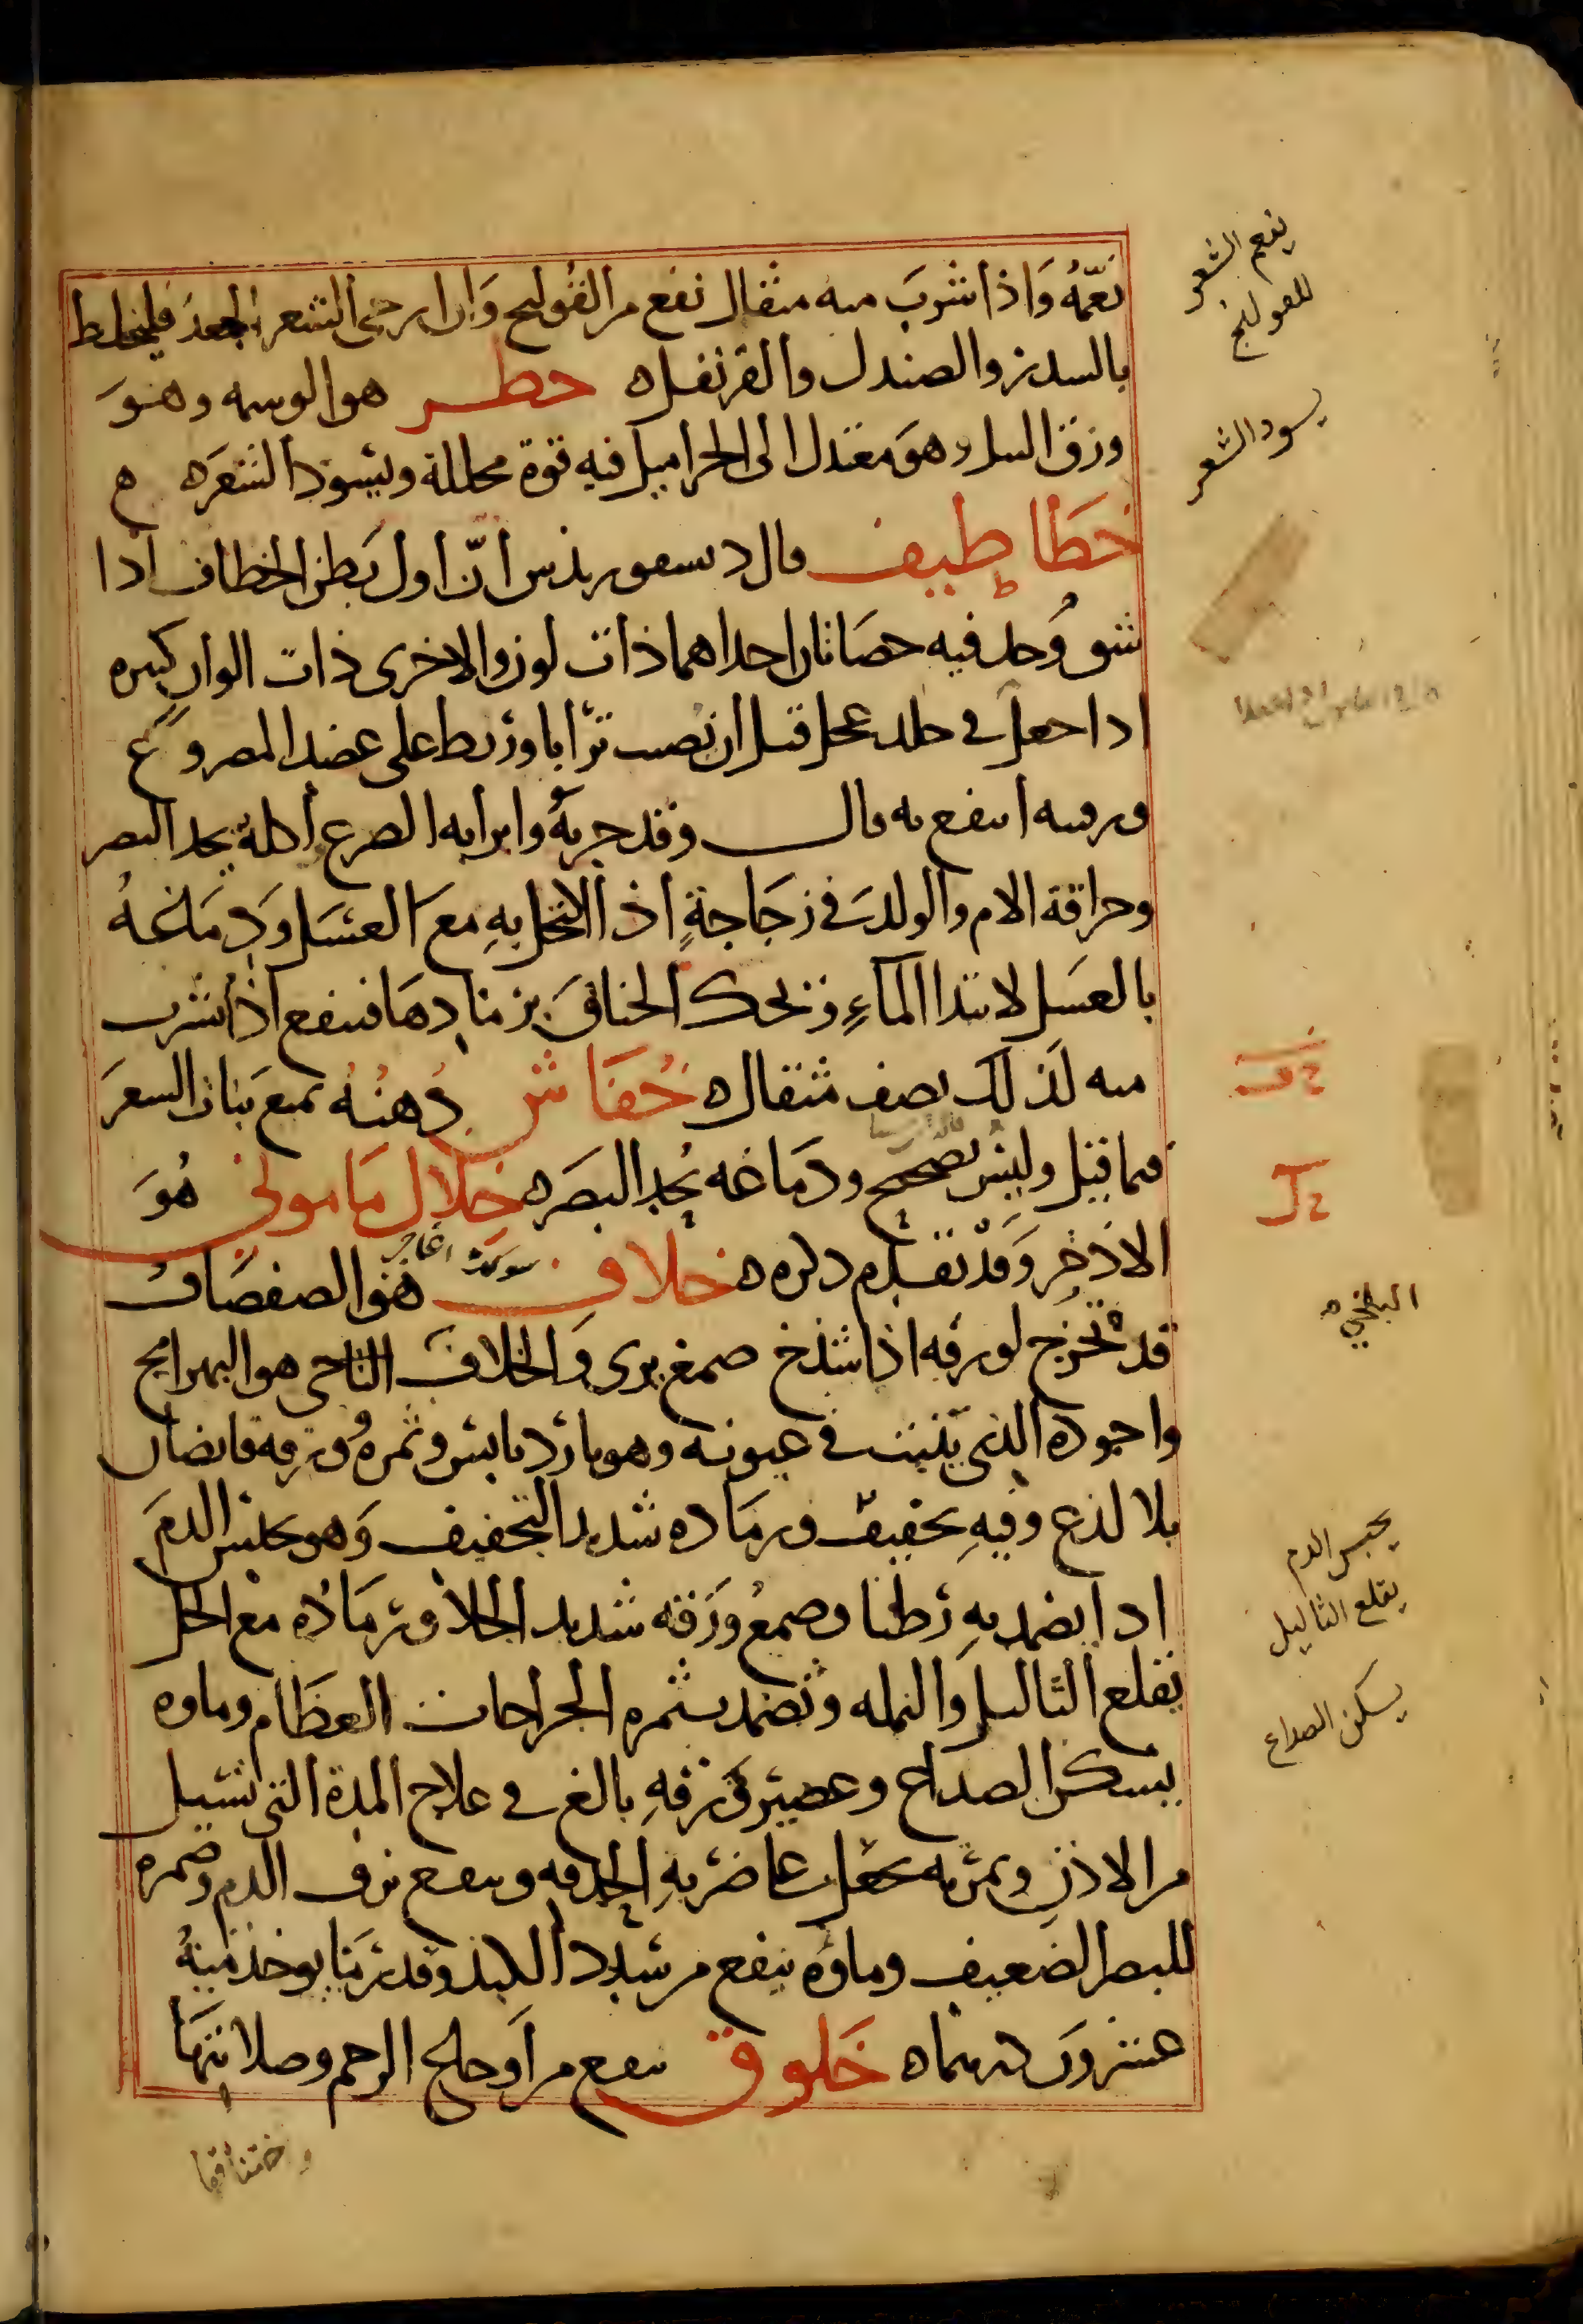 نعّمهُ وَاذا شربَ منه مثقال نفع من القولنج وَان ارجى الشعر الجعد فليخلط
بالسدر والصندل والقرنفل ه خطر هو الوسمه وهوَ
ورق النيل وهوَ معتدل الى الحر اميل فيه قوة محللة ويسود الشعر ه ه
خطاطيف قال ديسقوريدس انّ اول بطن الخطاف اذا
شق وُجد فيه حصاتان احداهما ذات لون والاخرى ذات الوان كثيره
اذا جعل في جلد عجل قبل ان تصيب ترابا وربط على عضد المصروع
ورقبته انتفع به قال وقد جربهُ وابرا به الصرع اكلهُ يحد البصر
وحراقة الام والولد في زجاجةٍ اذا اكتحل بهِ معَ العسَل وَدِمَاغهُ
بالعسَل لابتدا المآءِ وَيحنك الخناقَ برمادهَا فينفع اذا شرب
منه لذلك نصف مثقال ه خُفاش دُهنُه يمنع نبات الشعرَ
فيما قيل وليسَ بصحيح ودمَاغه يُحد البصَر ه خِلال مَامونى هُوَ
الاذخر وَقَدْ تقدم ذكره ه خلاف سوكت اغاجى هُوَ الصفصَاف
قد تُخرج لورقه اذا شدخ صمغ برى وَالخلافَ البلخى هو البهرامج
واجوده الذى ينبت فى عيونه وهو بارد يابس وثمره وَورقه قابضان
بلا لذع وفيهِ تجفيف ورمَاده شديد التجفيف وَهو يحبس الدمَ
اذا يضمد بهِ رطبا وصمغ ورقه شديد الجلا ورمَادُه مع الخل
يقلع الثاليل والنمله وَتضمد بثمره الجراحات العظام وماوه
يسكن الصداع وعصير وَرقهِ بالغ في علاج المدة التى تسيل
من الاذنِ وثمرته تجعل على ضربهِ الحدقه وينفع نزف الدم وثمره
للبصر الضعيف وماؤه ينفع من سدد الكبد وقد ربّما يوخذ منهُ
عشرونَ درهما ه خَلوق ينفع من اوجاع الرحم وصلابتهَا
ينعم الشعر
للقولنج
يسود الشعر
خف
خل
البلخي ه
يحبس الدم
يقلع الثاليل
يسكن الصداع